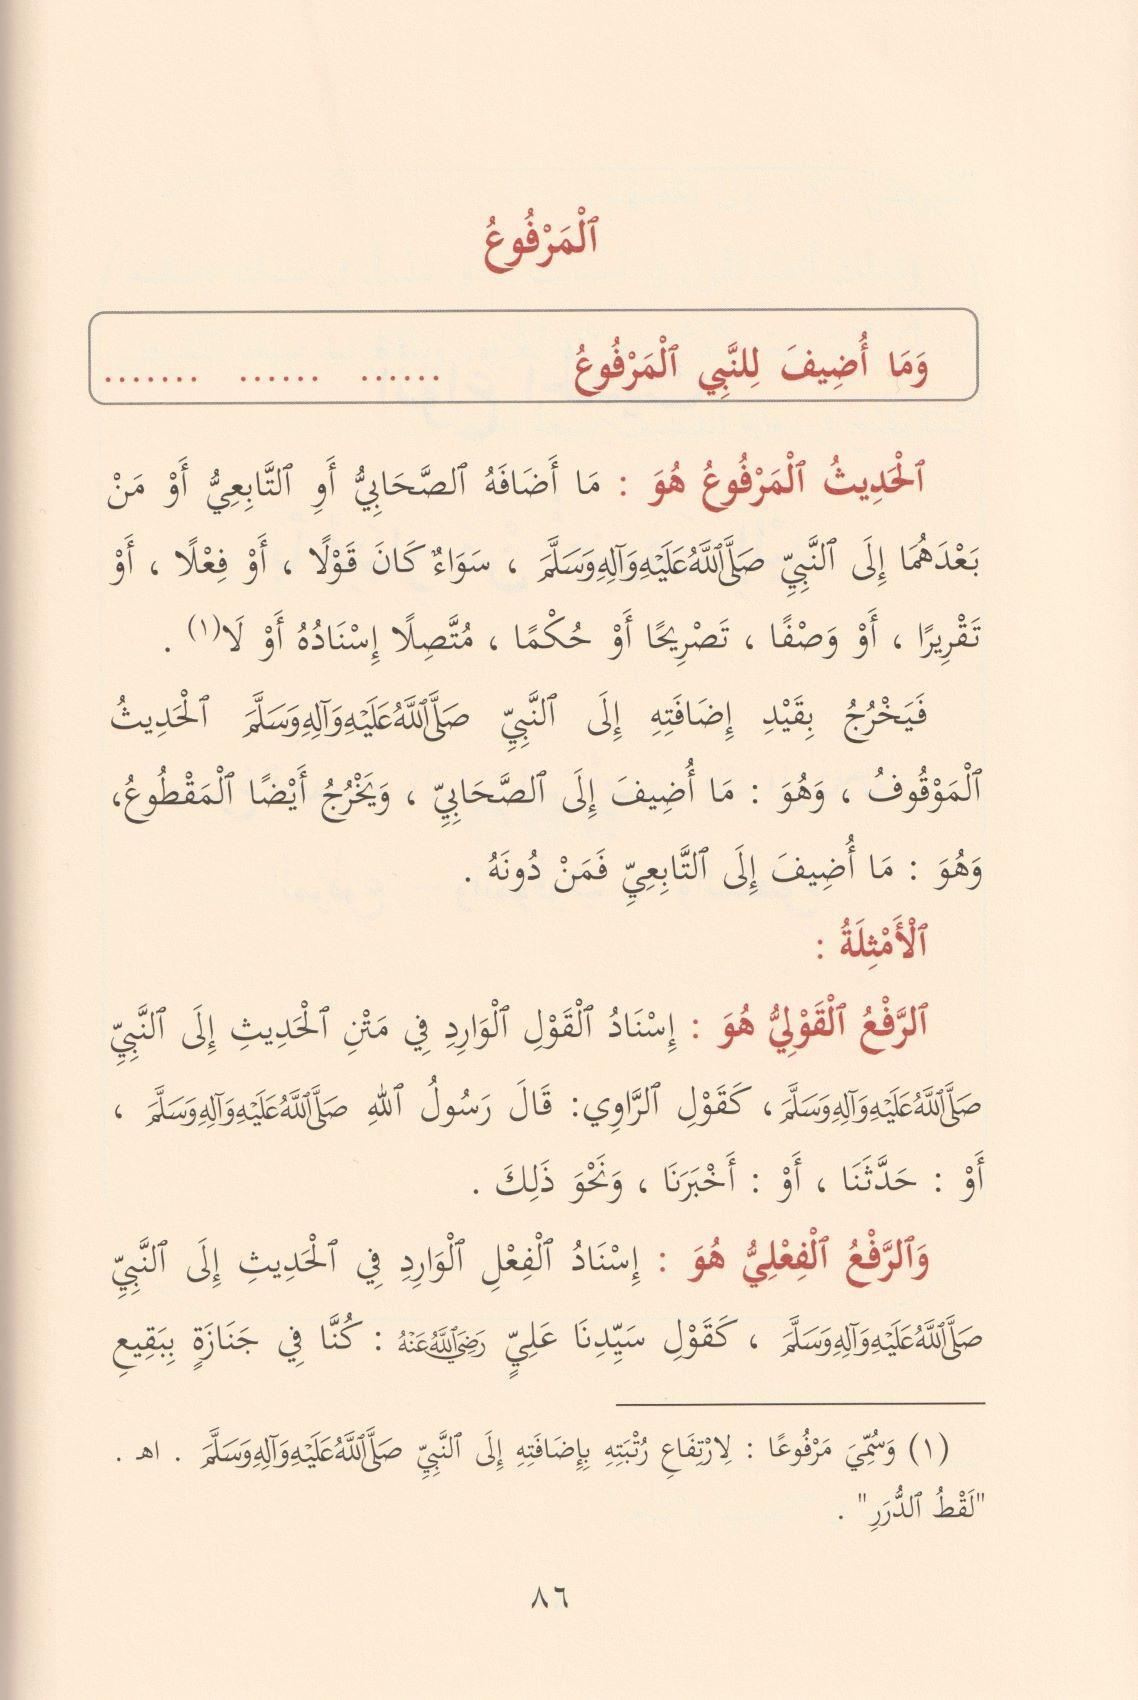 ٱلْمَرْفُوعُ
وَمَا أُضِيفَ لِلنَّبِي ٱلْمَرْفُوعُ ...... ...... .......
ٱلْحَدِيثُ ٱلْمَرْفُوعُ هُوَ : مَا أَضَافَهُ ٱلصَّحَابِيُّ أَوِ ٱلتَّابِعِيُّ أَوْ مَنْ
بَعْدَهُمَا إِلَى ٱلنَّبِيِّ صَلَّى ٱللَّهُ عَلَيْهِ وَآلِهِ وَسَلَّمَ ، سَوَاءٌ كَانَ قَوْلًا ، أَوْ فِعْلًا ، أَوْ
تَقْرِيرًا ، أَوْ وَصْفًا ، تَصْرِيحًا أَوْ حُكْمًا ، مُتَّصِلًا إِسْنَادُهُ أَوْ لَا(١) .
فَيَخْرُجُ بِقَيْدِ إِضَافَتِهِ إِلَى ٱلنَّبِيِّ صَلَّى ٱللَّهُ عَلَيْهِ وَآلِهِ وَسَلَّمَ ٱلْحَدِيثُ
ٱلْمَوْقُوفُ ، وَهُوَ : مَا أُضِيفَ إِلَى ٱلصَّحَابِيِّ ، وَيَخْرُجُ أَيْضًا ٱلْمَقْطُوعُ،
وَهُوَ : مَا أُضِيفَ إِلَى ٱلتَّابِعِيِّ فَمَنْ دُونَهُ .
ٱلْأَمْثِلَةُ :
ٱلرَّفْعُ ٱلْقَوْلِيُّ هُوَ : إِسْنَادُ ٱلْقَوْلِ ٱلْوَارِدِ فِي مَتْنِ ٱلْحَدِيثِ إِلَى ٱلنَّبِيِّ
صَلَّى ٱللَّهُ عَلَيْهِ وَآلِهِ وَسَلَّمَ، كَقَوْلِ ٱلرَّاوِي: قَالَ رَسُولُ ٱللهِ صَلَّى ٱللَّهُ عَلَيْهِ وَآلِهِ وَسَلَّمَ ،
أَوْ : حَدَّثَنَا ، أَوْ : أَخْبَرَنَا ، وَنَحْوَ ذَلِكَ .
وَٱلرَّفْعُ ٱلْفِعْلِيُّ هُوَ : إِسْنَادُ ٱلْفِعْلِ ٱلْوَارِدِ فِي ٱلْحَدِيثِ إِلَى ٱلنَّبِيِّ
صَلَّى ٱللَّهُ عَلَيْهِ وَآلِهِ وَسَلَّمَ ، كَقَوْلِ سَيِّدِنَا عَلِيٍّ رَضِيَ ٱللَّهُ عَنْهُ : كُنَّا فِي جَنَازَةٍ بِبَقِيعِ
(١) وَسُمِّيَ مَرْفُوعًا : لِارْتِفَاعِ رُتْبَتِهِ بِإِضَافَتِهِ إِلَى ٱلنَّبِيِّ صَلَّى ٱللَّهُ عَلَيْهِ وَآلِهِ وَسَلَّمَ . اهـ .
"لَقْطُ ٱلدُّرَرِ" .
٨٦